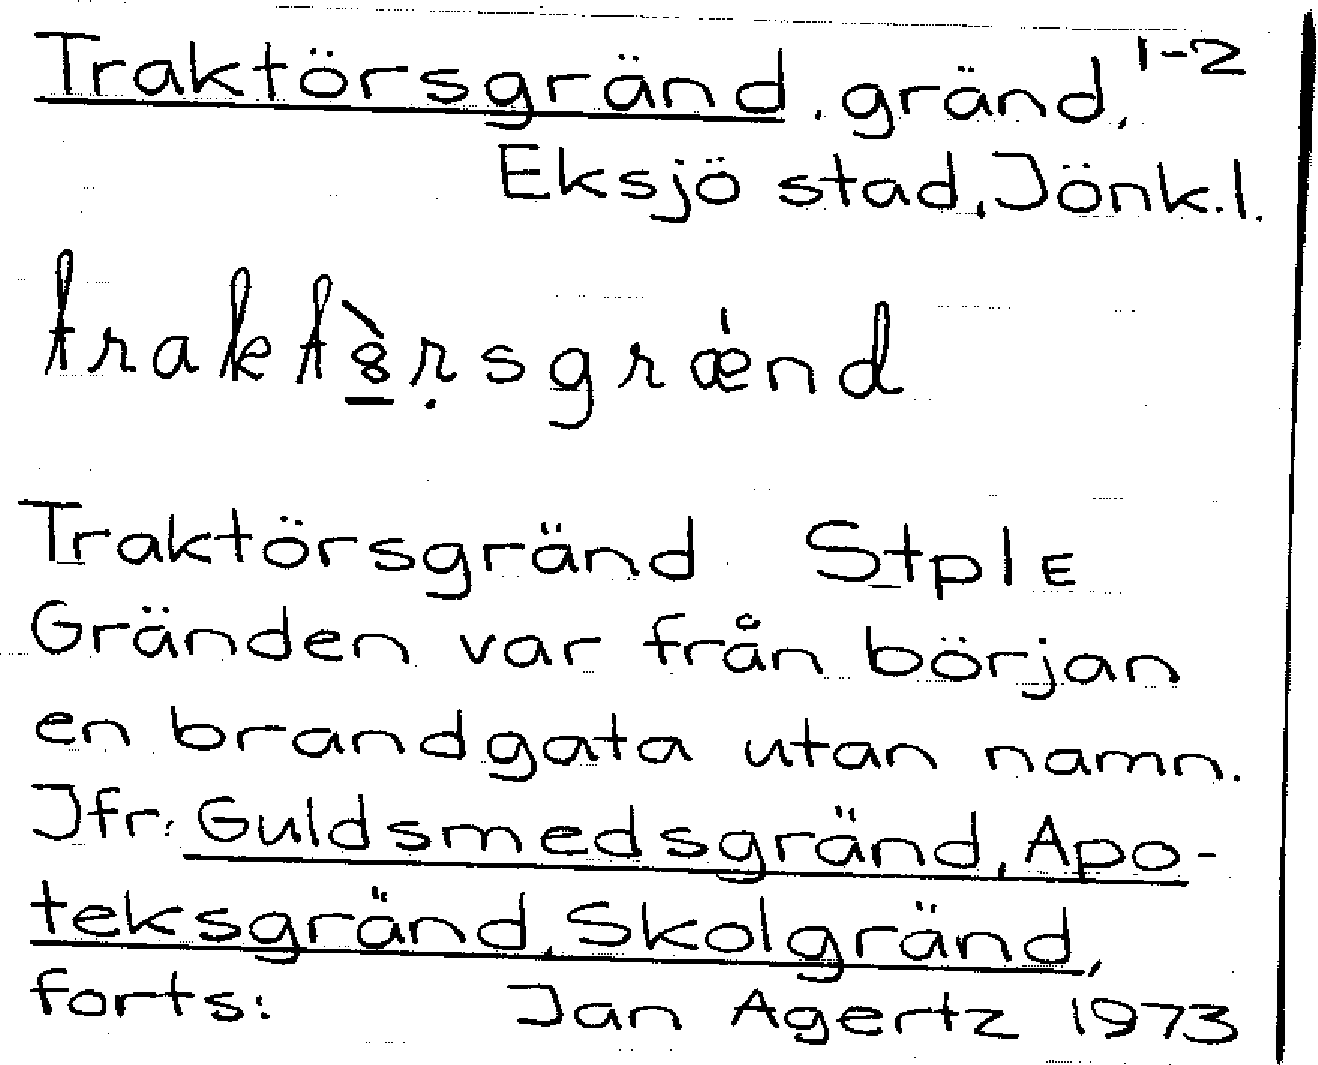 Traktörsgränd, gränd, 1-2
Eksjö stad, Jönk.l.
traktỏ̀ṛsgrǽnd
Traktörsgränd StplE
Gränden var från början
en brandgata utan namn.
Jfr: Guldsmedsgränd, Apo-
teksgränd, Skolgränd,
forts: Jan Agertz 1973